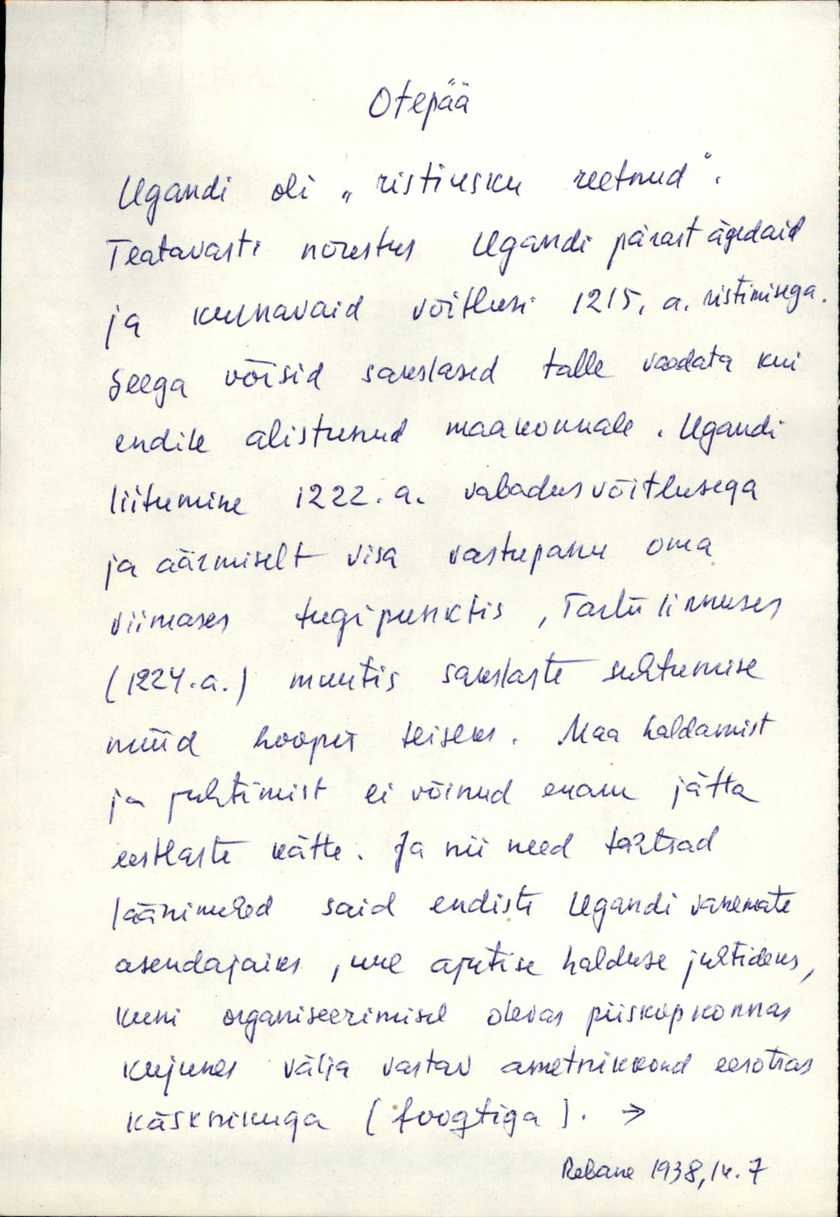 Otepää
Ugandi oli „ristiusku reetnud".
Teatavasti nõrestus Ugandi pärast ägedaid
ja kurnavaid võitlusi 1215. a. ristimisega.
Seega võisid sakslased talle vaadata kui
endile alistunud maakonnale. Ugandi
liitumine 1222. a. vabadusvõitlusega
ja äärmiselt visa vastupanu oma
viimases tugipunktis, Tartu linnuses
(1224. a.) muutis sakslaste suhtumise
nüüd hoopis teiseks. Maa haldamist
ja juhtimist ei võinud enam jätta
eestlaste kätte. Ja nii need
läänimehed said endiste Ugandi vanemate
asendajaiks, uue ajutise halduse juhtideks,
kuni organiseerimisel olevas piiskopkonnas
kujunes välja vastav ametnikkond eesotsas
käsknikuga (foogtiga). →
Rebane 1938, lk. 7